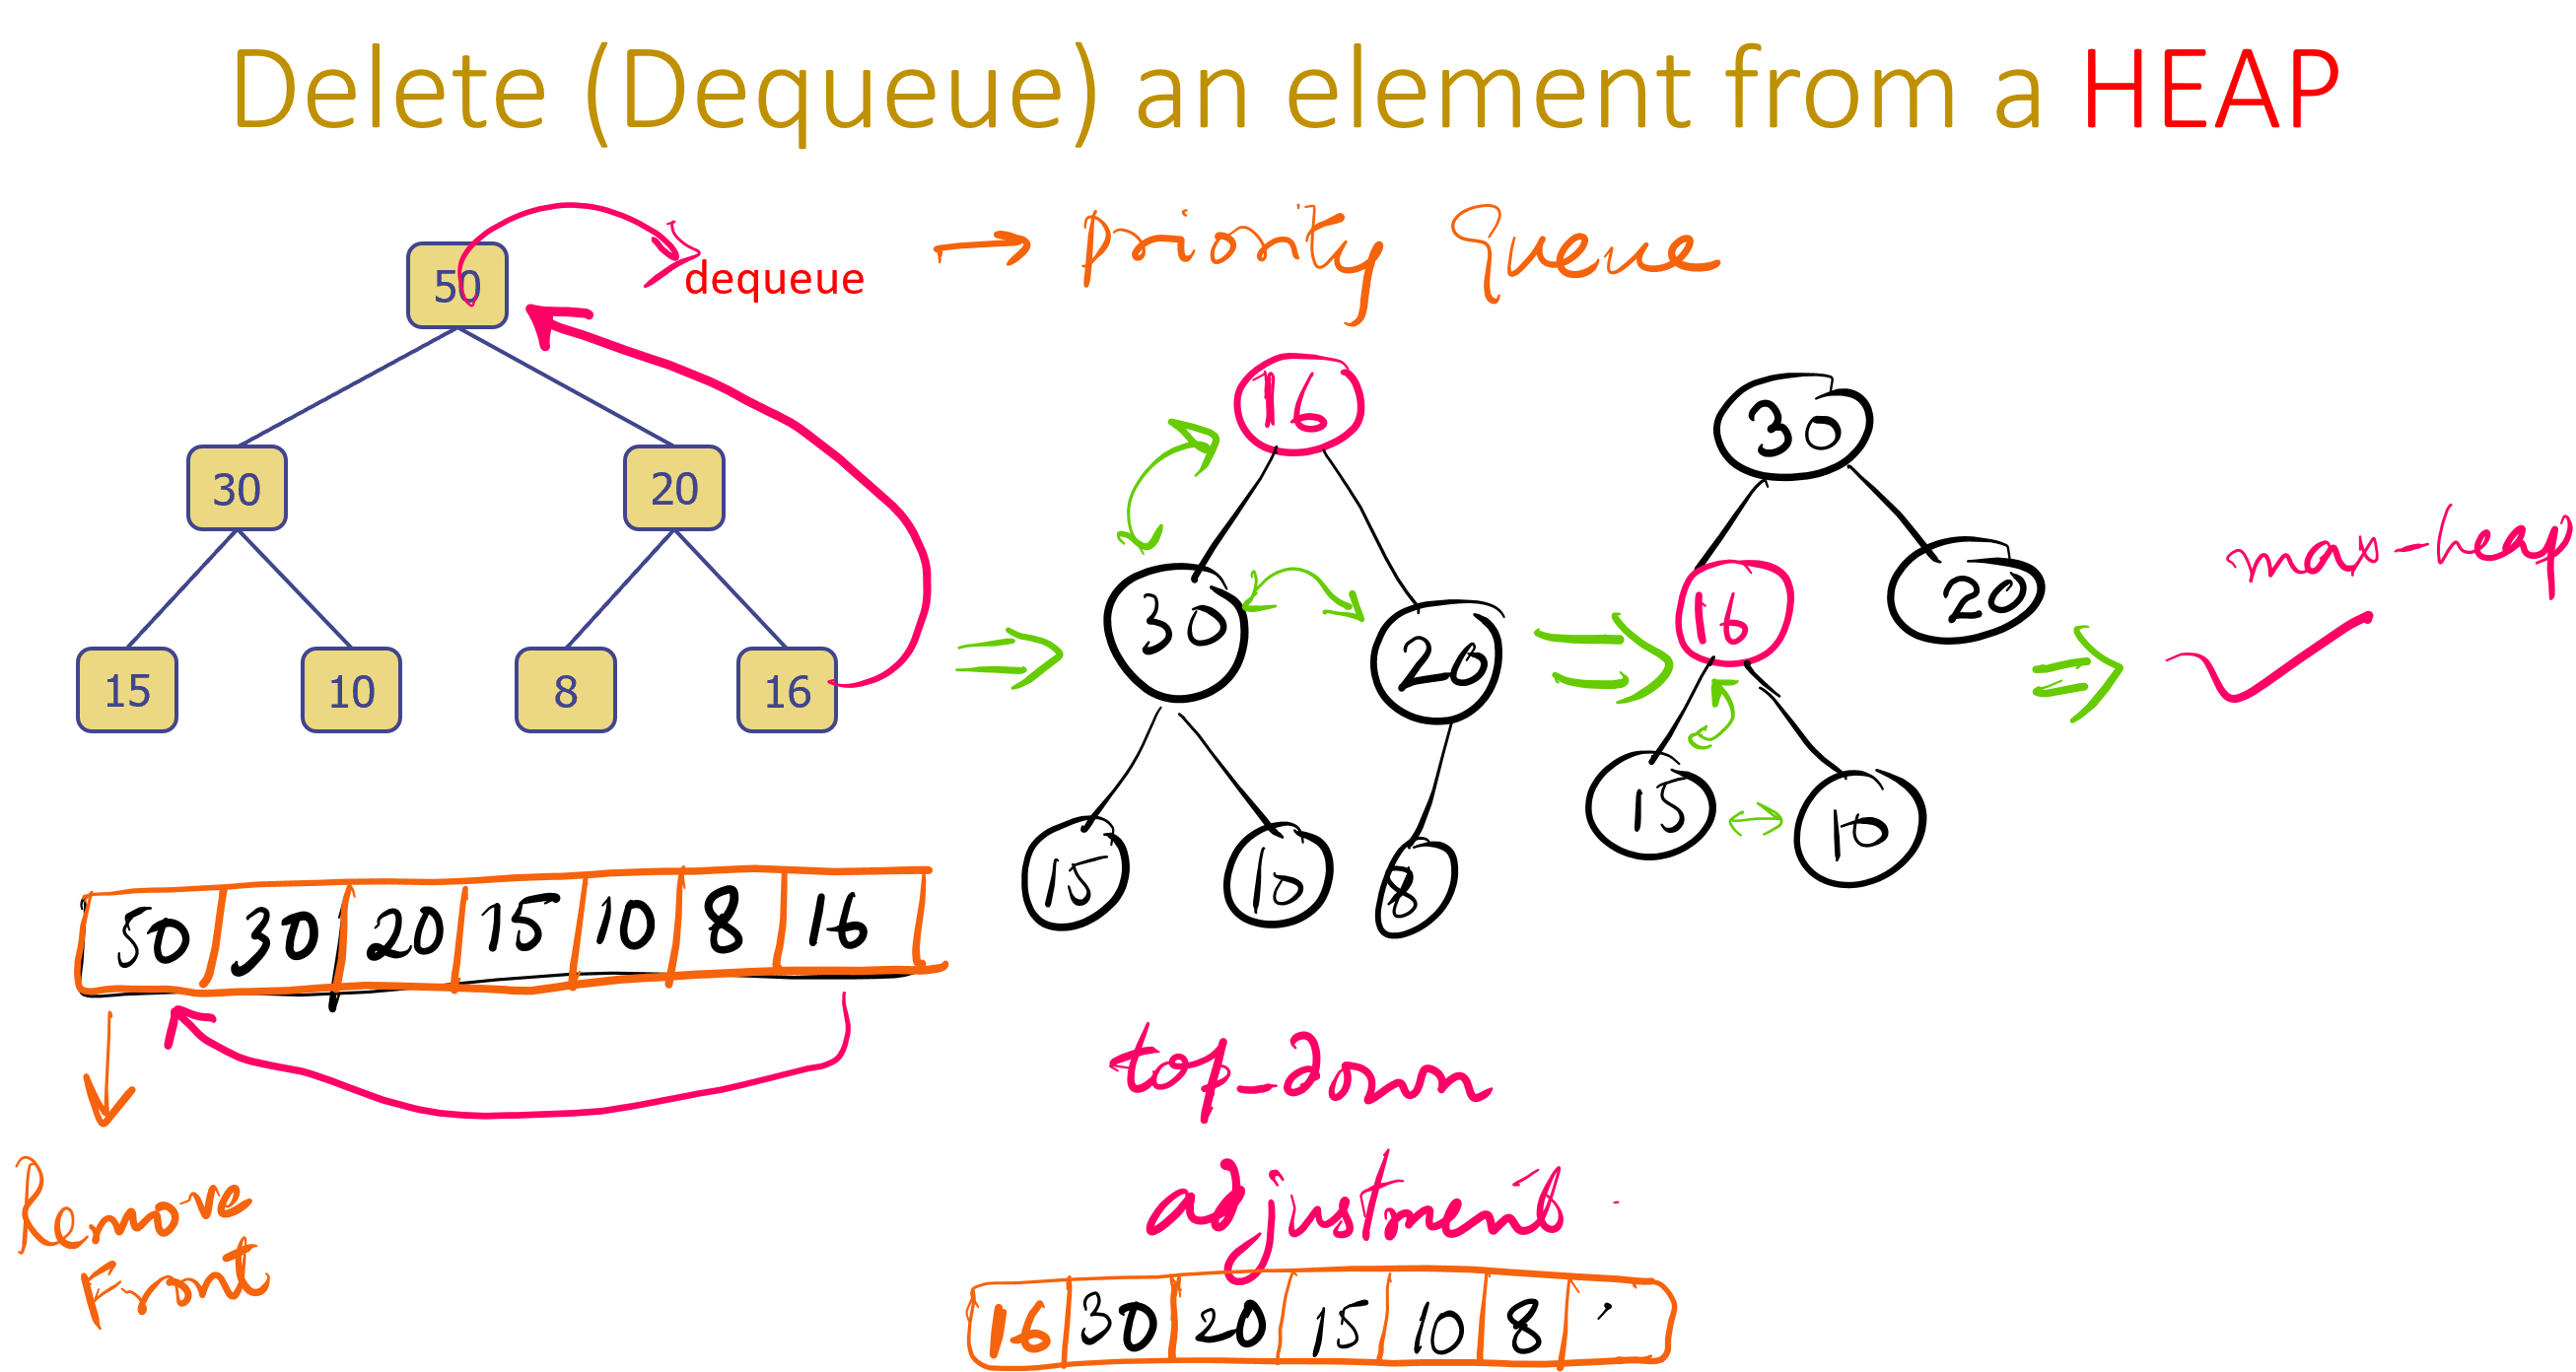 Delete (Dequeue) an element from a HEAP
dequeue → Priority Queue
50
30 20
15 10 8 16
16
30 20
15 10 8
30
16 20
15 10
max-heap
50 30 20 15 10 8 16
Remove
Front
top-down
adjustment
16 30 20 15 10 8